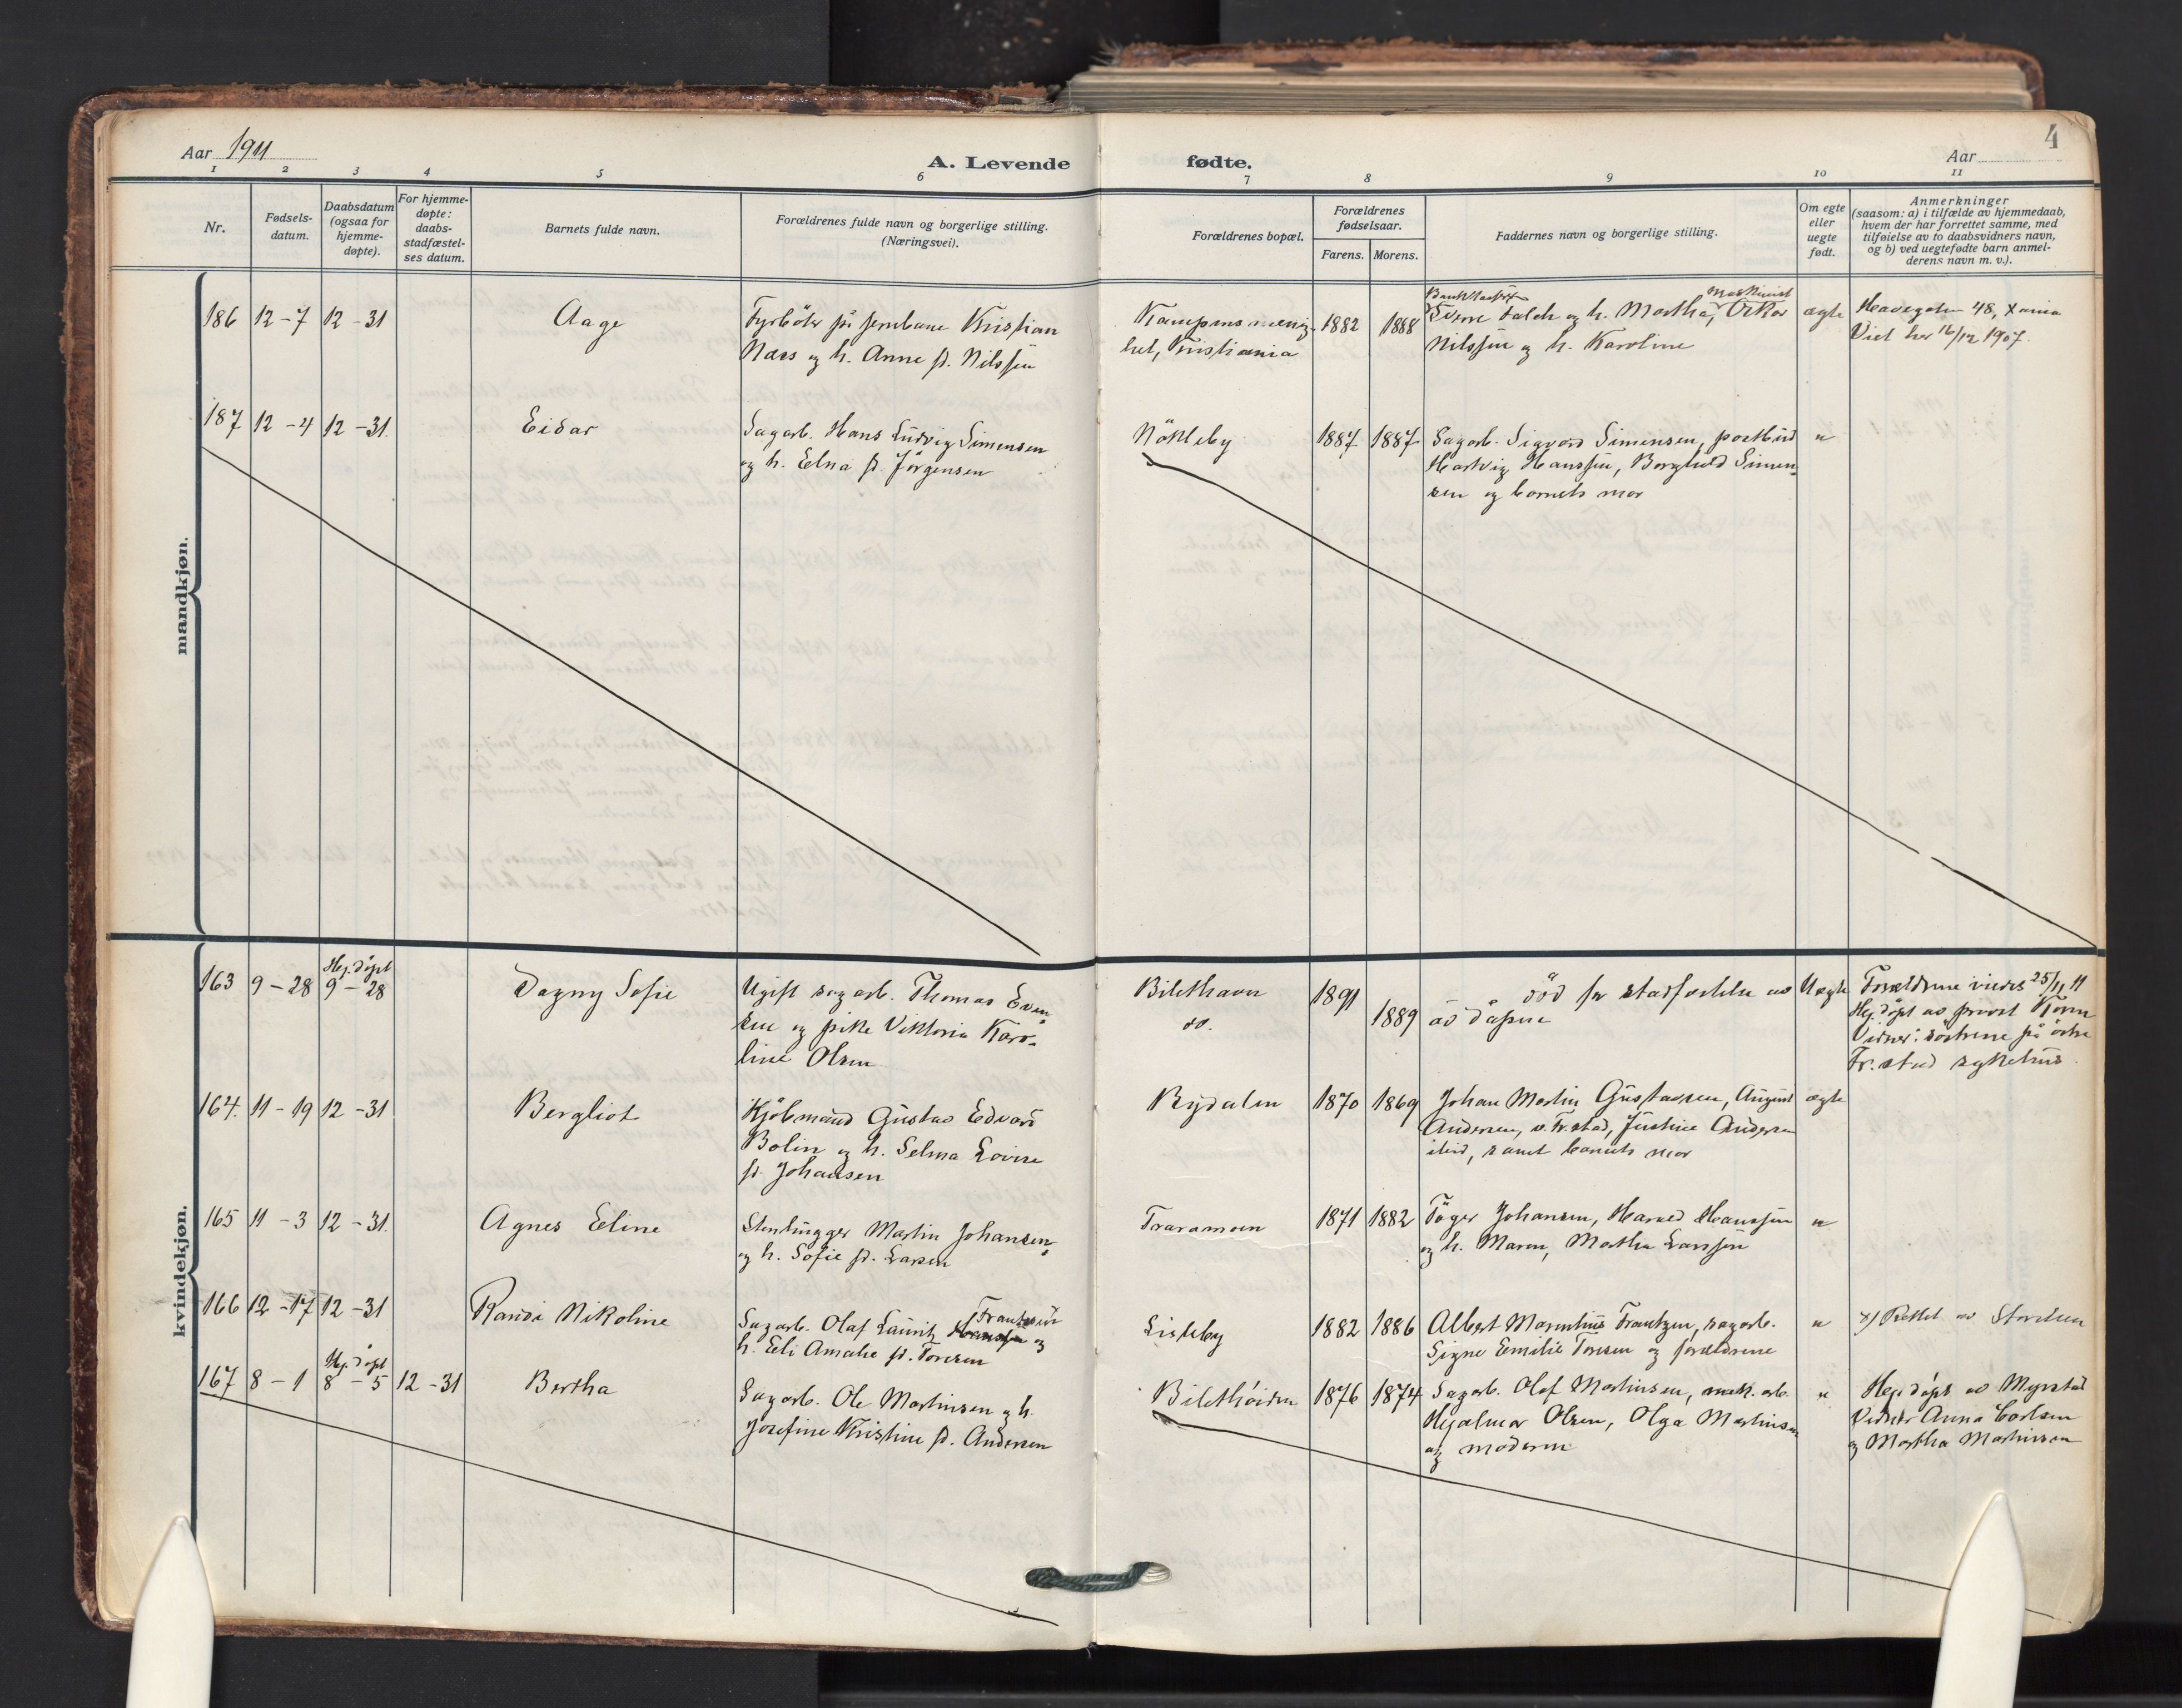 4
Aar 1911
A. Levende fødte.
Aar
1 2 3 4 5 6 7 8 9 10 11
Nr.
Fødsels-
datum.
Daabsdatum
(ogsaa for
hjemme-
døpte).
For hjemme-
døpte:
daabs-
stadfæstel-
ses datum.
Barnets fulde navn.
Forældrenes fulde navn og borgerlige stilling.
(Næringsvei).
Forældrenes bopæl.
Forældrenes
fødselsaar.
Farens. Morens.
Faddernes navn og borgerlige stilling.
Om egte
eller
uegte
født.
Anmerkninger
(saasom: a) i tilfælde av hjemmedaab,
hvem der har forrettet samme, med
tilføielse av to daabsvidners navn,
og b) ved uegtefødte barn anmel-
derens navn m. v.).
mandkjøn.
186 12-7 12-31
Aage
Fyrböter på jernbane Kristian
Næss og h. Anne f. Nilssen
Kampens menig-
het, Kristiania
1882 1888
Falch og h. Martha, Oskar
Maskinist
Nilssen og h. Karoline
ægte
Havegaten 48, Xania
Viet her 16/12 1907.
187 12-4 12-31.
Eidar
Sagarb. Hans Ludvig Simensen
og h. Elna f. Jörgensen
Nökleby
1887 1887
Sagarb. Sigvard Simensen, postbud
Hartvig Hanssen, Borghild Simen-
sen og barnets mor
"
kvindekjøn.
163 9-28
Hej. döpt
9-28
Dagny Sofie
Ugift sagarb. Thomas Even-
sen og pike Viktoria Karo-
line Olsen
Bilethavn
do.
1891
1889
död før stadfestelse av
av dåpen
Uægte
Forældrene viedes 25/11 11
Hej. döpt av provst Korm
Vidner: söstrene på östre
Fr.stad sykehus.
164. 11-19 12-31
Bergliot
Kjöbmand Gustav Edvard
Bolin og h. Selma Lovise
f. Johansen
Rydalen
1870 1869
Johan Martin Gustavsen, August
Andersen, v. Fr.stad, Justine Andersen
ibid, samt barnets mor
ægte
165 11-3 12-31.
Agnes Eline
Stenhugger Martin Johansen
og h. Sofie f. Larsen
Traramoen
1871 1882
Töger Johansen, Harald Hanssen
og h. Maren, Martha Larssen
"
166 12-17 12-31
Randi Nikoline
Frantzen
Sagarb. Olaf Lauritz Hanssen og
h. Eli Amalie f. Toresen
Lisleby
1882 1886
Albert Marentius Frantzen, sagarb.
Signe Emilie Toresen og forældrene
"
x) Rettet av Storelsen
167 8-1
Hej. döpt
8-5 12-31
Bertha
Sagarb. Ole Martinsen og h.
Josefine Kristine f. Andersen
Bilethöiden
1876 1874
Sagarb. Olaf Martinsen, mek. arb.
Hjalmar Olsen, Olga Martinsen
og moderen
"
Hej. döpt av Myrstad
Vidner Anna Carlsen
og Martha Martinsen